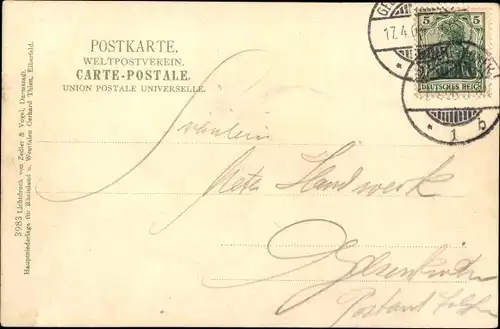 POSTKARTE.
WELTPOSTVEREIN.
CARTE-POSTALE.
UNION POSTALE UNIVERSELLE.
5 5
DEUTSCHES REICH
17.4.
* 1 b
Fräulein
Meta Handwerk
Gelsenkirchen
3983 Lichtdruck von Zedler & Vogel, Darmstadt.
Hauptniederlage für Rheinland u. Westfalen Gerhard Thien, Elberfeld.